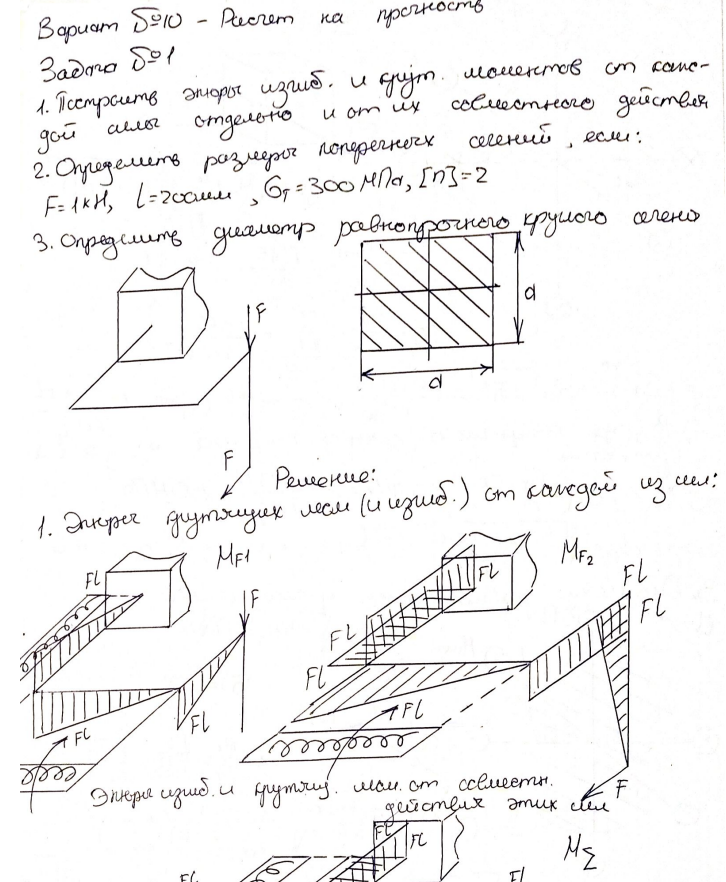 Вариант №10 - Расчет на прочность
Задача №1
1. Построить эпюры изгиб. и крут. моментов от каж-
дой силы отдельно и от их совместного действия
2. Определить размеры поперечных сечений, если:
F=1кН, l=200мм, σт=300 МПа, [n]=2
3. Определить диаметр равнопрочного круглого сечени
F
F
a
a
Решение:
1. Эпюры крутящих мом (и изгиб.) от каждой из сил:
Fl
MF1
F
Fl
Fl
MF2
Fl
Fl
Fl
Fl
Fl
Fl
F
Эпюры изгиб. и крутящ. мом. от совместн.
действия этих сил
Fl
Fl
MΣ
Fl
Fl